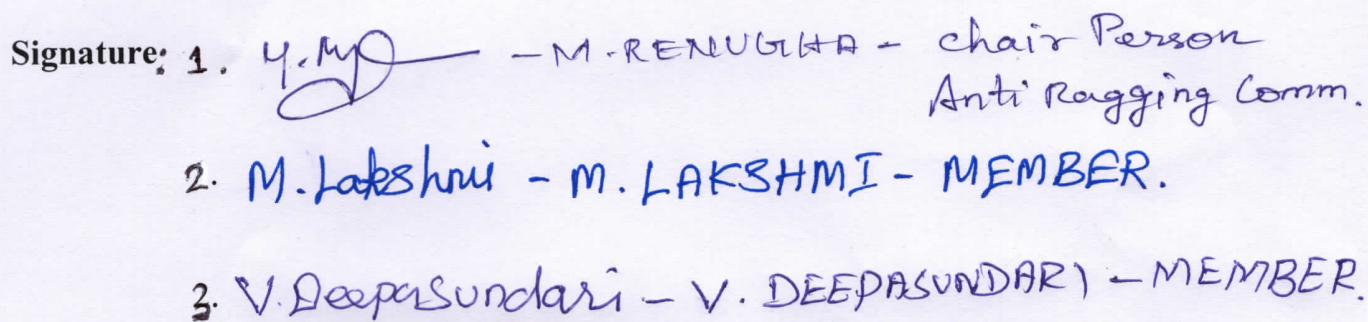 Signature: 1. - M. RENUGHA - chair Person
Anti Ragging Comm.
2. M. Lakshmi - M. LAKSHMI - MEMBER.
3. V. Deepasundari - V. DEEPASUNDARI - MEMBER.